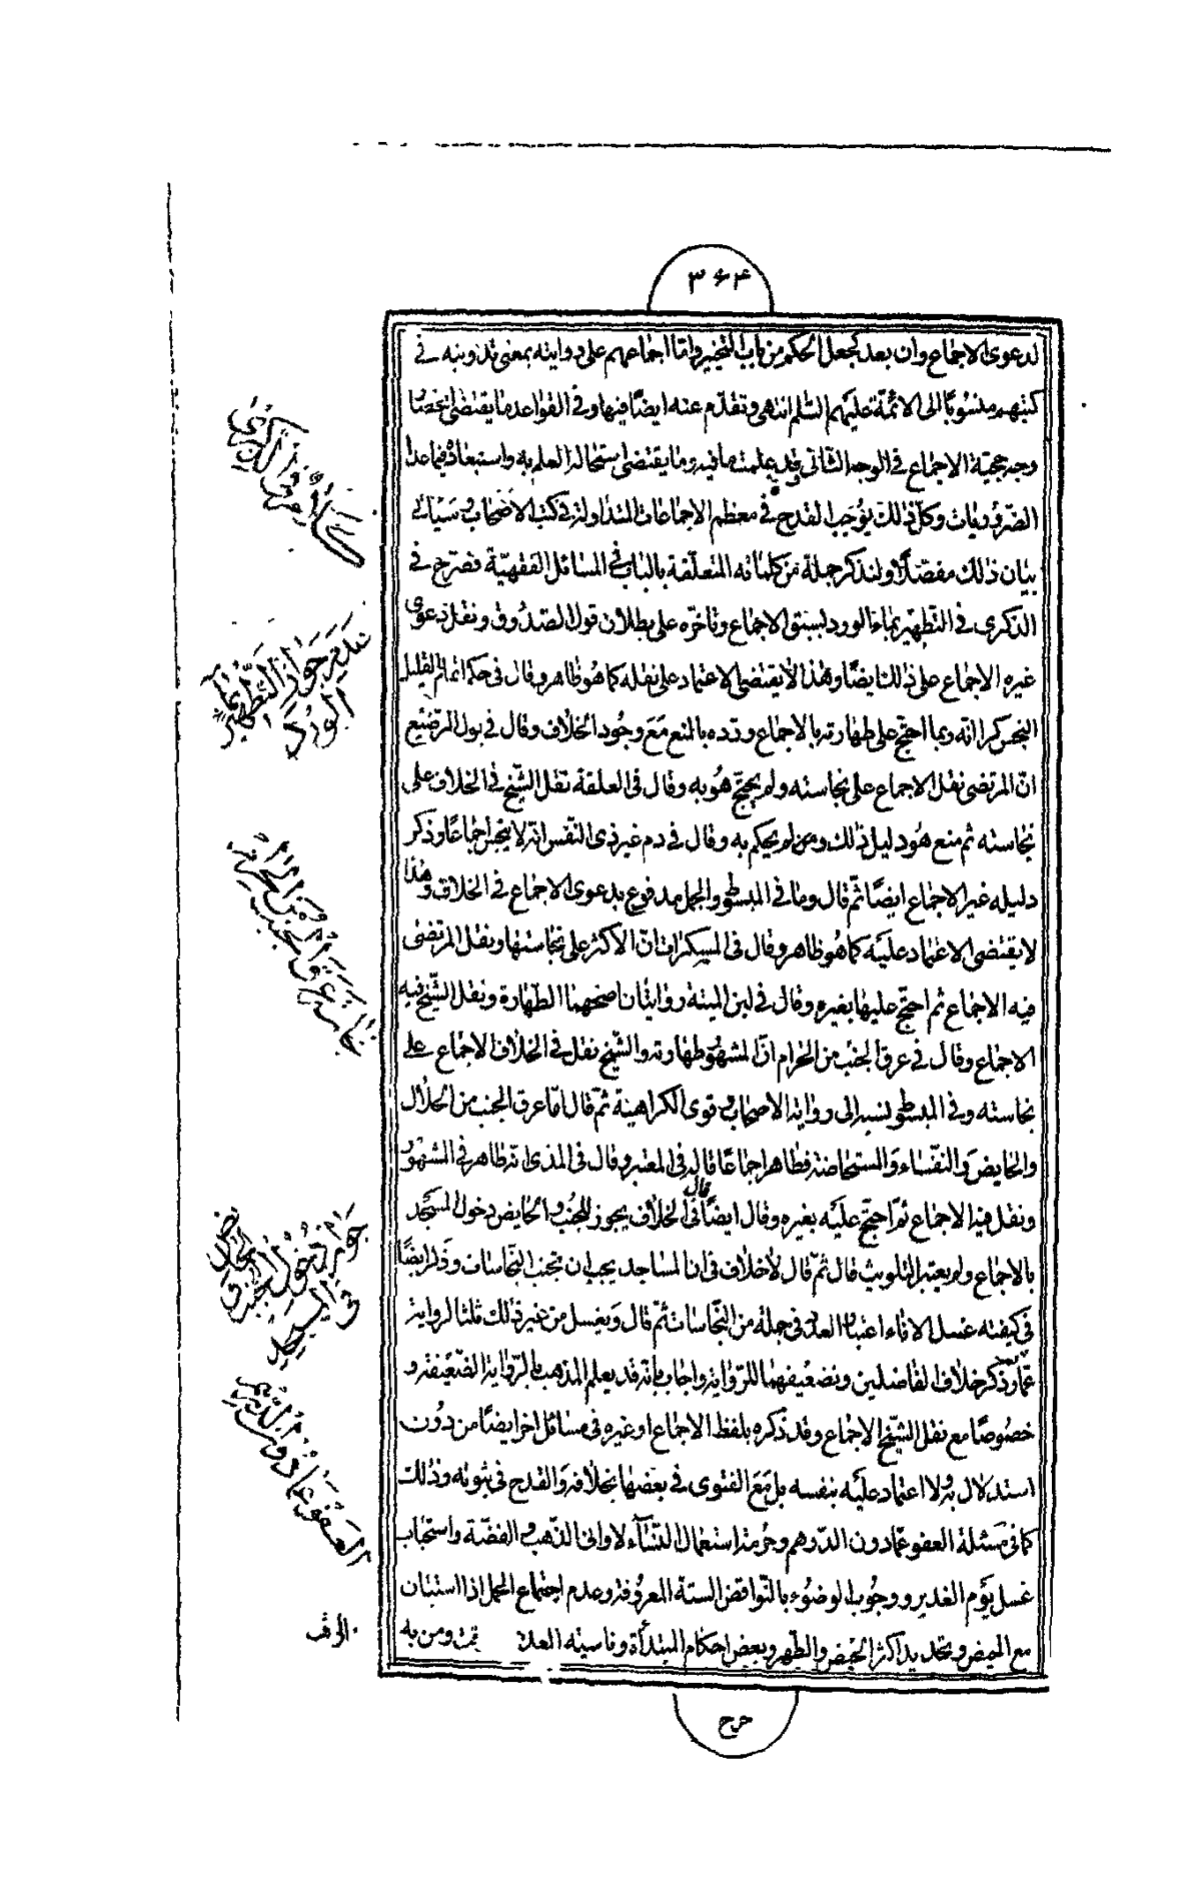 ۳۶۴
لدعوى الاجماع وان بعد كجعل الحكم من باب التخيير واما اجماعهم على روايته بمعنى تدوينه في
كتبهم منسوبا الى الائمة عليهم السلم انتهى وتقدم عنه ايضا فيها وفي القواعد ما يقتضى انحصار
وجه حجية الاجماع في الوجه الثاني وقد علمت ما فيه وما يقتضى استحالة العلم به واستبعاده فيما عدا
الضروريات وكل ذلك يوجب القدح في معظم الاجماعات المتداولة في كتب الاصحاب وسياتي
بيان ذلك مفصلا ولنذكر جملة من كلماته المتعلقة بالباب في المسائل الفقهية فصرح في
الذكرى في التطهير بماء الورد بسبق الاجماع وتاخره على بطلان قول الصدوق ونقل دعوى
غيره الاجماع على ذلك ايضا وهذا لا يقتضى الاعتماد على نقله كما هو ظاهر وقال في حكم اتمام القليل
النجس كرا انه ربما احتج على طهارته بالاجماع ورده بالمنع مع وجود الخلاف وقال في بول الرضيع
ان المرتضى نقل الاجماع على نجاسته ولم يحتج هو به وقال في العلقة نقل الشيخ في الخلاف على
نجاسته ثم منع هو دليل ذلك ومن لم يحكم به وقال في دم غير ذى النفس انه لا ينجس اجماعا وذكر
دليله غير الاجماع ايضا ثم قال وما في المبسوط والجمل مدفوع بدعوى الاجماع في الخلاف وهذا
لا يقتضى الاعتماد عليه كما هو ظاهر وقال في المسكرات ان الاكثر على نجاستها ونقل المرتضى
فيه الاجماع ثم احتج عليها بغيره وقال في لبن الميتة روايتان اصحهما الطهارة ونقل الشيخ فيه
الاجماع وقال في عرق الجنب من الحرام ان المشهور طهارته والشيخ نقل في الخلاف الاجماع على
نجاسته وفي المبسوط نسبه الى رواية الاصحاب وقوى الكراهية ثم قال اما عرق الجنب من الحلال
والحايض والنفساء والمستحاضة فطاهر اجماعا قاله في المعتبر وقال في المذى انه طاهر في المشهور
ونقل فيه الاجماع ثم احتج عليه بغيره وقال ايضا قال في الخلاف يجوز للجنب والحايض دخول المسجد
بالاجماع ولم يعتبر التلويث قال ثم قال لا خلاف في ان المساجد يجب ان تجنب النجاسات وذكر ايضا
في كيفية غسل الاناء اعتبار العدد في جملة من النجاسات ثم قال ويغسل من غير ذلك ثلثا لرواية
عمار وذكر خلاف الفاضلين وتضعيفهما للرواية واجاب بانه قد يعلم المذهب بالرواية الضعيفة و
خصوصا مع نقل الشيخ الاجماع وقد ذكره بلفظ الاجماع او غيره في مسائل اخر ايضا من دون
استدلال به ولا اعتماد عليه بنفسه بل مع الفتوى في بعضها بخلافه والقدح في ثبوته وذلك
كما في مسئلة العفو عما دون الدرهم وحرمة استعمال النساء لاواني الذهب والفضة واستحباب
غسل يوم الغدير ووجوب الوضوء بالنواقض الستة المعروفة وعدم اجتماع الحمل اذا استبان
مع الحيض وتحديد اكثر الحيض والطهر وبعض احكام المبتدأة وناسية العدد
ومن به
حرج
كلام في الذكرى
عدم جواز التطهير بماء الورد
نجاسة عرق الجنب من الحرام
جواز دخول الجنب والحايض في المسجد
العفو عما دون الدرهم